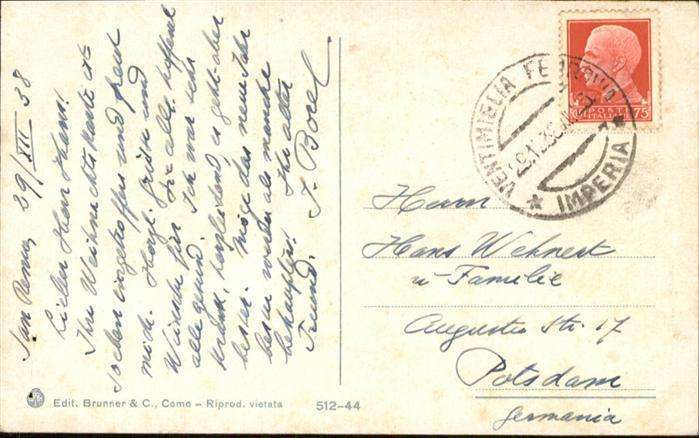 San Remo, 29/XII 38
Lieber Herr Hans!
Ihre Weihnachtskarte ist
soeben eingetroffen und freut
mich. Herzl. Grüße und
Wünsche für Sie alle, hoffend
alle gesund. Ich war sehr
krank, es geht aber
besser. Möge das neue Jahr
besser werden als manche
behaupten! Ihr alter
Freund.
J. Borel
VENTIMIGLIA FERROVIA
* IMPERIA *
POSTE
ITALIANE
75
Herrn
Hans Wehnert
u Familie
Augusta Str. 17
Potsdam
Germania
Edit. Brunner & C., Como – Riprod. vietata 512-44